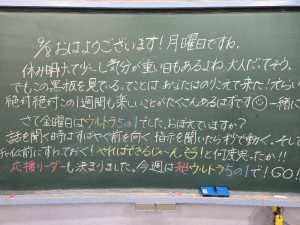 9/8 おはようございます！月曜日ですね。
休み明けで少〜し気分が重い日もあるよね 大人だってそう。
でもこの黒板を見ているってことは あなたはのりこえて来た！えらい
絶対絶対この1週間も楽しいことがたくさんあるはずです☺ 一緒に
さて金曜日はウルトラ5の1でした。おぼえていますか？
話を聞く時はすばやく前を向く 指示を聞いたら秒で動く。そして
仏前にすわっておく！やればできるじゃ〜ん 名！と何度思ったか!!
応援リーダーも決まりました。今週は超ウルトラ5の1で！GO!!